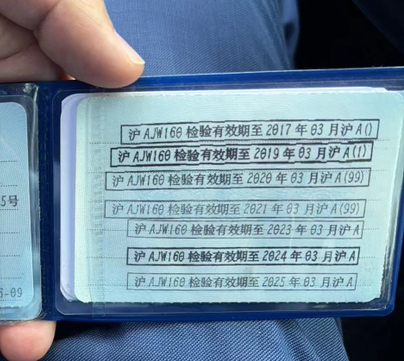 沪 AJW160 检验有效期至 2017 年 03 月沪 A()
沪 AJW160 检验有效期至 2019 年 03 月沪 A(1)
沪 AJW160 检验有效期至 2020 年 03 月沪 A(99)
5号
沪 AJW160 检验有效期至 2021 年 03 月沪 A(99)
沪 AJW160 检验有效期至 2023 年 03 月沪 A
沪 AJW160 检验有效期至 2024 年 03 月沪 A
沪 AJW160 检验有效期至 2025 年 03 月沪 A
-09